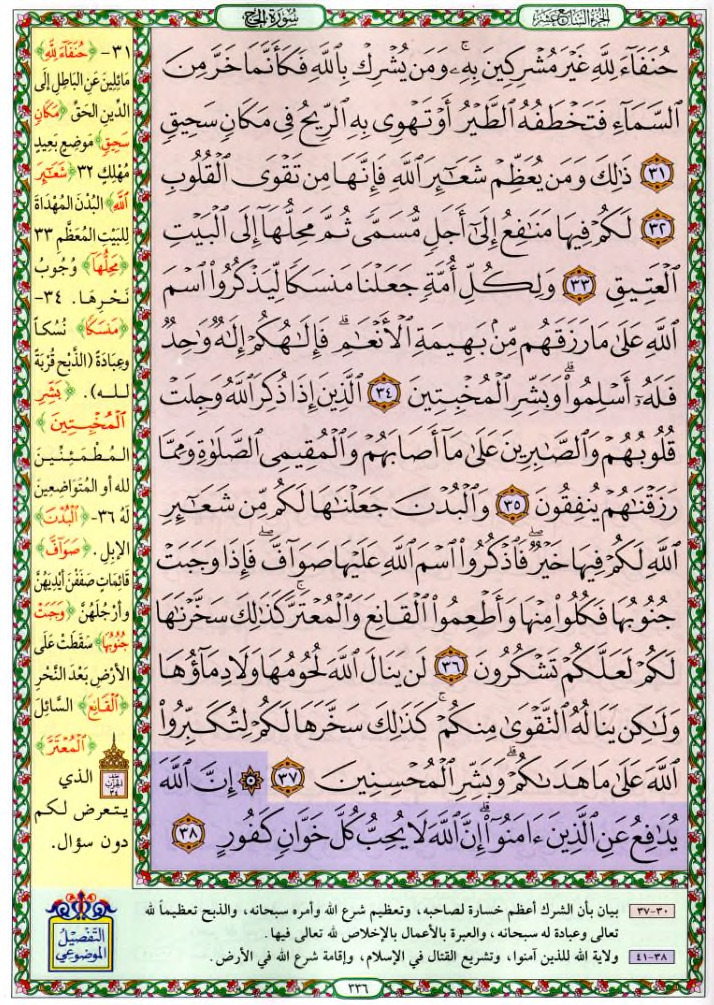 الجزء السابع عشر
سورة الحج
حُنَفَآءَ لِلَّهِ غَيْرَ مُشْرِكِينَ بِهِۦ ۚ وَمَن يُشْرِكْ بِٱللَّهِ فَكَأَنَّمَا خَرَّ مِنَ
ٱلسَّمَآءِ فَتَخْطَفُهُ ٱلطَّيْرُ أَوْ تَهْوِى بِهِ ٱلرِّيحُ فِى مَكَانٍ سَحِيقٍ
٣١ ذَٰلِكَ وَمَن يُعَظِّمْ شَعَـٰٓئِرَ ٱللَّهِ فَإِنَّهَا مِن تَقْوَى ٱلْقُلُوبِ
٣٢ لَكُمْ فِيهَا مَنَـٰفِعُ إِلَىٰٓ أَجَلٍ مُّسَمًّى ثُمَّ مَحِلُّهَآ إِلَى ٱلْبَيْتِ
ٱلْعَتِيقِ ٣٣ وَلِكُلِّ أُمَّةٍ جَعَلْنَا مَنسَكًا لِّيَذْكُرُوا۟ ٱسْمَ
ٱللَّهِ عَلَىٰ مَا رَزَقَهُم مِّنۢ بَهِيمَةِ ٱلْأَنْعَـٰمِ ۗ فَإِلَـٰهُكُمْ إِلَـٰهٌ وَٰحِدٌ
فَلَهُۥٓ أَسْلِمُوا۟ ۗ وَبَشِّرِ ٱلْمُخْبِتِينَ ٣٤ ٱلَّذِينَ إِذَا ذُكِرَ ٱللَّهُ وَجِلَتْ
قُلُوبُهُمْ وَٱلصَّـٰبِرِينَ عَلَىٰ مَآ أَصَابَهُمْ وَٱلْمُقِيمِى ٱلصَّلَوٰةِ وَمِمَّا
رَزَقْنَـٰهُمْ يُنفِقُونَ ٣٥ وَٱلْبُدْنَ جَعَلْنَـٰهَا لَكُم مِّن شَعَـٰٓئِرِ
ٱللَّهِ لَكُمْ فِيهَا خَيْرٌ ۖ فَٱذْكُرُوا۟ ٱسْمَ ٱللَّهِ عَلَيْهَا صَوَآفَّ ۖ فَإِذَا وَجَبَتْ
جُنُوبُهَا فَكُلُوا۟ مِنْهَا وَأَطْعِمُوا۟ ٱلْقَانِعَ وَٱلْمُعْتَرَّ ۚ كَذَٰلِكَ سَخَّرْنَـٰهَا
لَكُمْ لَعَلَّكُمْ تَشْكُرُونَ ٣٦ لَن يَنَالَ ٱللَّهَ لُحُومُهَا وَلَا دِمَآؤُهَا
وَلَـٰكِن يَنَالُهُ ٱلتَّقْوَىٰ مِنكُمْ ۚ كَذَٰلِكَ سَخَّرَهَا لَكُمْ لِتُكَبِّرُوا۟
ٱللَّهَ عَلَىٰ مَا هَدَىٰكُمْ ۗ وَبَشِّرِ ٱلْمُحْسِنِينَ ٣٧ ۞ إِنَّ ٱللَّهَ
يُدَٰفِعُ عَنِ ٱلَّذِينَ ءَامَنُوٓا۟ ۗ إِنَّ ٱللَّهَ لَا يُحِبُّ كُلَّ خَوَّانٍ كَفُورٍ ٣٨
٣١- ﴿حُنَفَآءَ لِلَّهِ﴾
مَائِلِينَ عَنِ البَاطِلِ إِلَى
الدِّينِ الحَقِّ ﴿مَكَانٍ
سَحِيقٍ﴾ مَوضِعٍ بَعِيدٍ
مُهْلِكٍ ٣٢ ﴿شَعَـٰٓئِرَ
ٱللَّهِ﴾ البُدْنَ المُهْدَاةَ
لِلبَيْتِ المُعَظَّمِ ٣٣
﴿مَحِلُّهَآ﴾ وُجُوبُ
نَحْرِهَا. ٣٤-
﴿مَنسَكًا﴾ نُسُكاً
وعِبَادَةً (الذَّبْحَ قُرْبَةً
لله). ﴿بَشِّرِ
ٱلْمُخْبِتِينَ﴾
المُطْمَئِنِّينَ
لله أو المُتَوَاضِعِينَ
لَهُ ٣٦- ﴿ٱلْبُدْنَ﴾
الإِبِل. ﴿صَوَآفَّ﴾
قَائِمَاتٍ صَفَفْنَ أَيْدِيَهُنَّ
وأَرْجُلَهُنَّ ﴿وَجَبَتْ
جُنُوبُهَا﴾ سَقَطَتْ عَلَى
الأَرْضِ بَعْدَ النَّحْرِ
﴿ٱلْقَانِعَ﴾ السَّائِلَ
﴿ٱلْمُعْتَرَّ﴾
الذي
يتعرض لكم
دون سؤال.
التفصيل
الموضوعي
٣٠-٣٧ بيان بأن الشرك أعظم خسارة لصاحبه، وتعظيم شرع الله وأمره سبحانه، والذبح تعظيماً لله
تعالى وعبادة له سبحانه، والعبرة بالأعمال بالإخلاص لله تعالى فيها.
٣٨-٤١ ولاية الله للذين آمنوا، وتشريع القتال في الإسلام، وإقامة شرع الله في الأرض.
٣٣٦